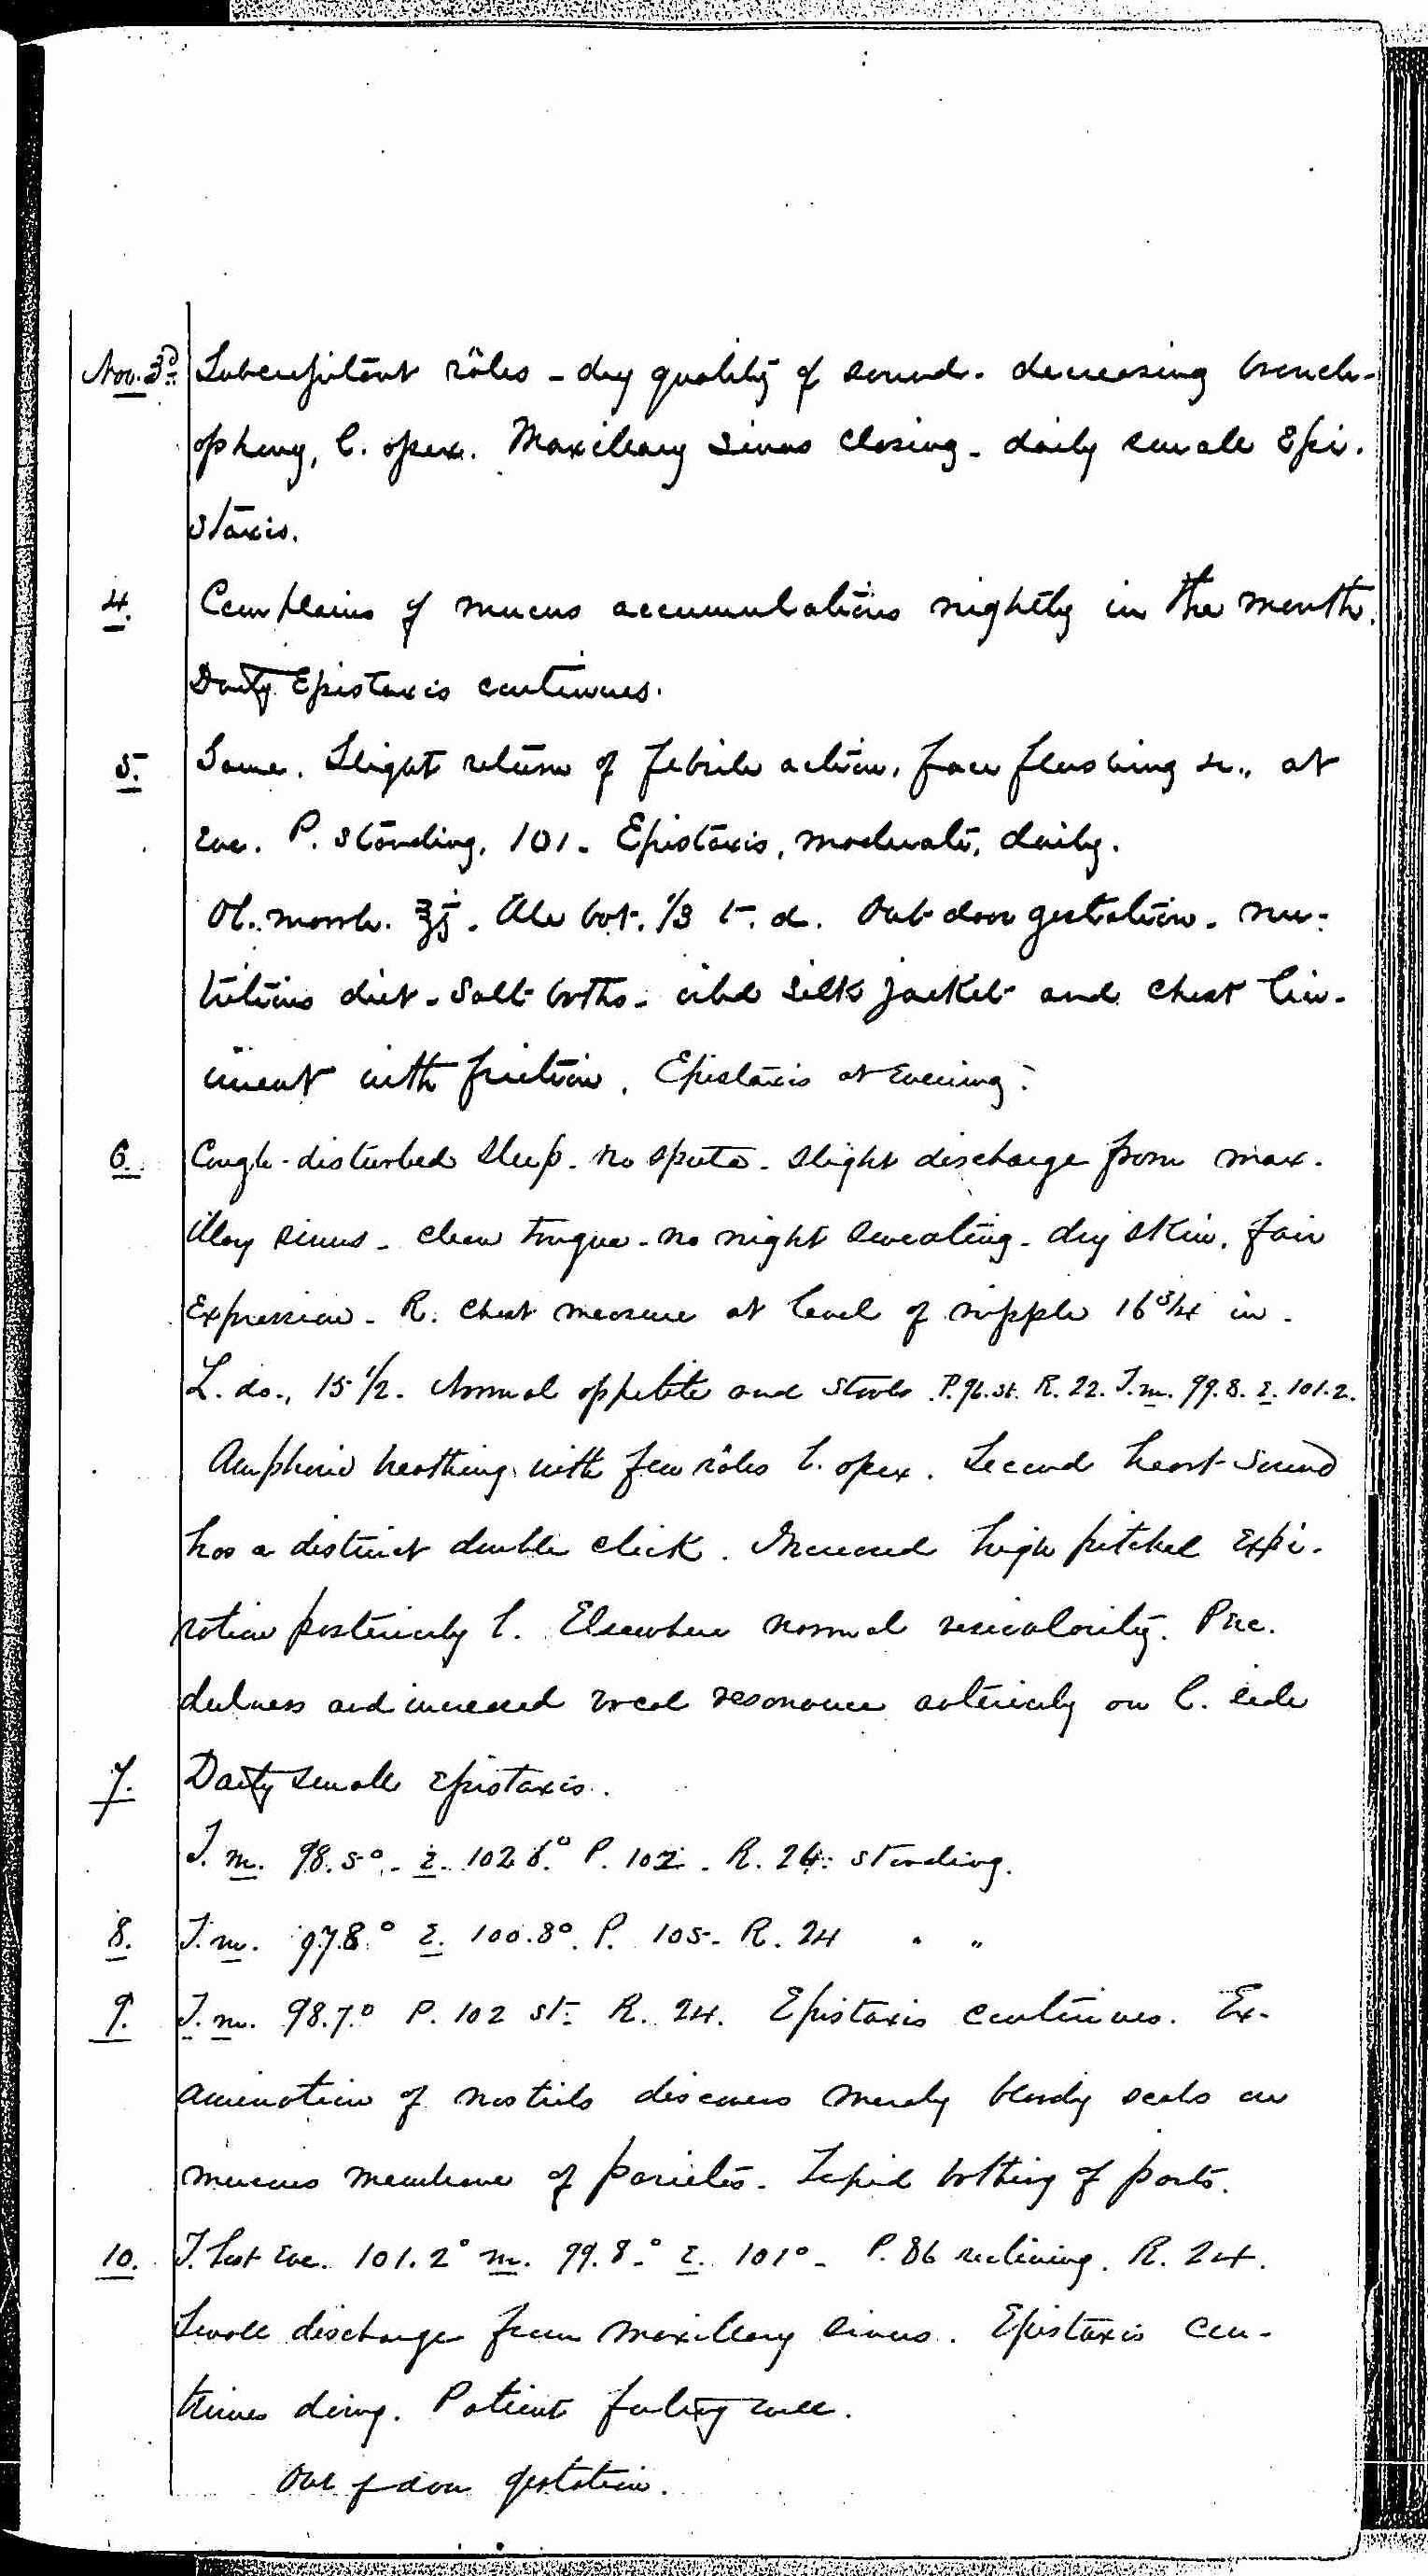 Nov. 3d. Subcrepitant râles - dry quality of sound - decreasing bronch-
ophony, l. apex. Maxillary sinus closing - daily small Epi-
staxis.
4. Complains of mucus accumulations nightly in the mouth.
Daily Epistaxis continues.
5. Same. Slight return of febrile action, face flushing &c., at
eve. P. standing, 101. Epistaxis, moderate, daily.
Ol. morrh. ℥j. Ale bot. 1/3 t. d. Out door gestation. Nu-
tritious diet - Salt baths - oiled silk jacket and chest lin-
iment with friction. Epistaxis at Evening.
6. Cough-disturbed sleep. No sputa. Slight discharge from max-
illary sinus - clean tongue - no night sweating - dry skin. fair
Expression - R. Chest measure at level of nipple 16 3/4 in.
L. do., 15 1/2. Normal appetite and stools. P. 96. st. R. 22. T. m. 99.8. E. 101.2.
Amphoric breathing with few râles l. apex. Second heart-sound
has a distinct double click. Increased high pitched Expi-
ration posteriorly l. Elsewhere normal vesicularity. Prc.
dulness and increased vocal resonance anteriorly on l. side
7. Daily small epistaxis.
T. m. 98.5° - E. 102.6° P. 102. R. 24. standing.
8. T. m. 97.8° E. 100.8°. P. 105. R. 24 " "
9. T. m. 98.7° P. 102 st. R. 24. Epistaxis continues. Ex-
amination of nostrils discovers merely bloody scabs on
mucous membrane of parietes. Tepid bathing of parts.
10. T. last Eve. 101.2° m. 99.8.° E. 101° - P. 86 reclining. R. 24.
Small discharge from maxillary sinus. Epistaxis con-
tinues daily. Patient feeling well.
Out of door gestation.